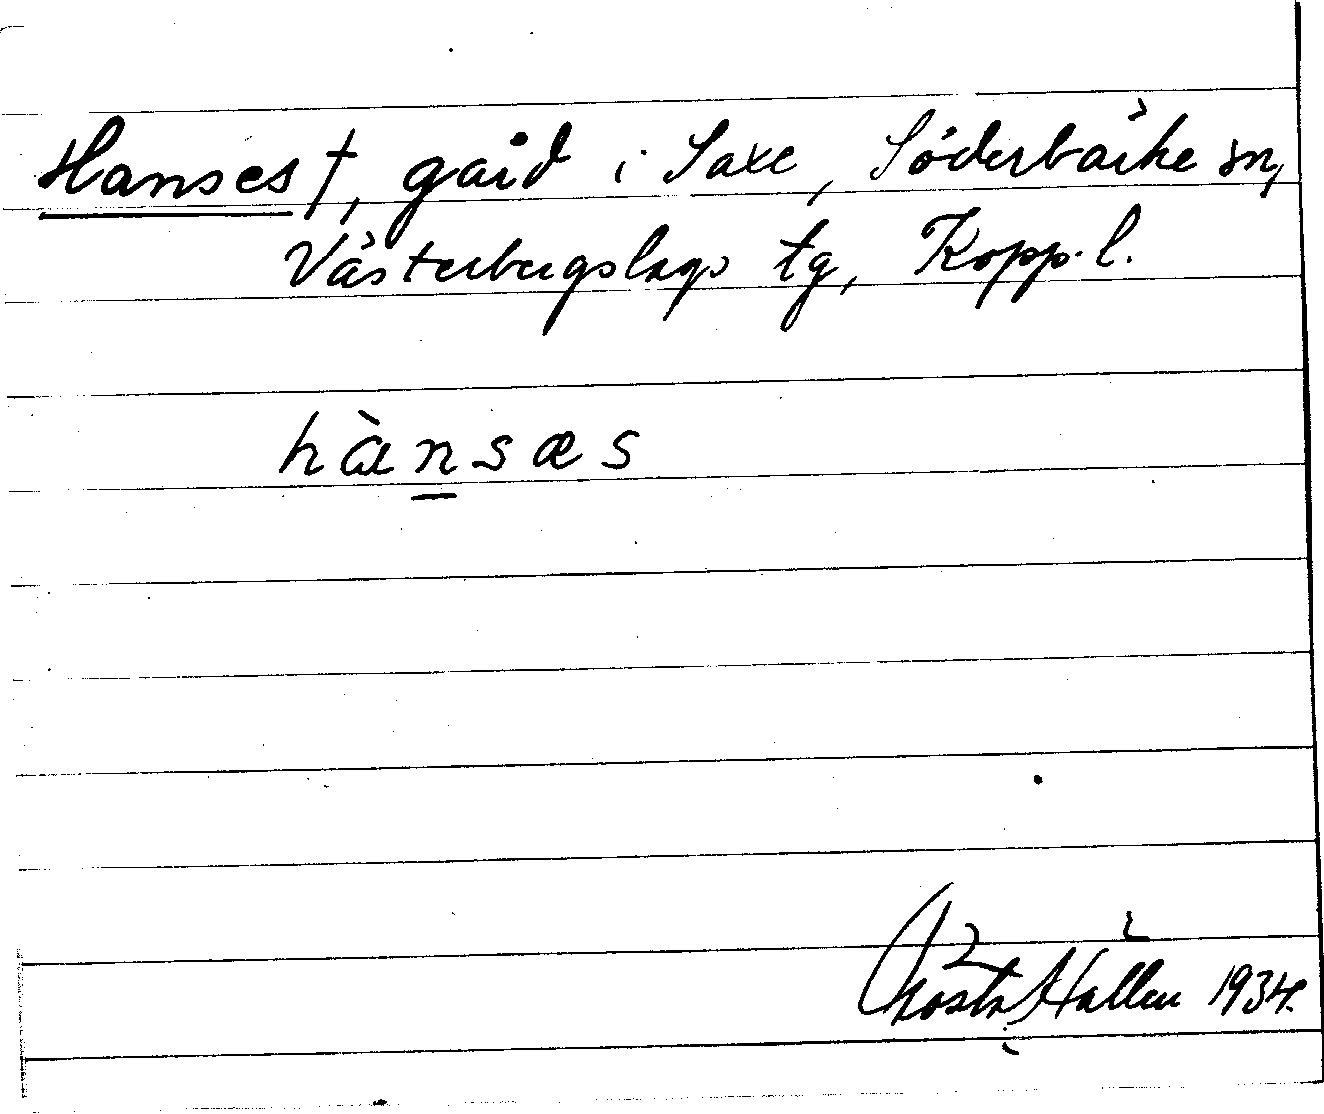 Hanses †, gård i Saxe, Söderbärke sn,
Västerbergslags tg, Kopp. l.
hànsæs
Gösta Hallén 1934.